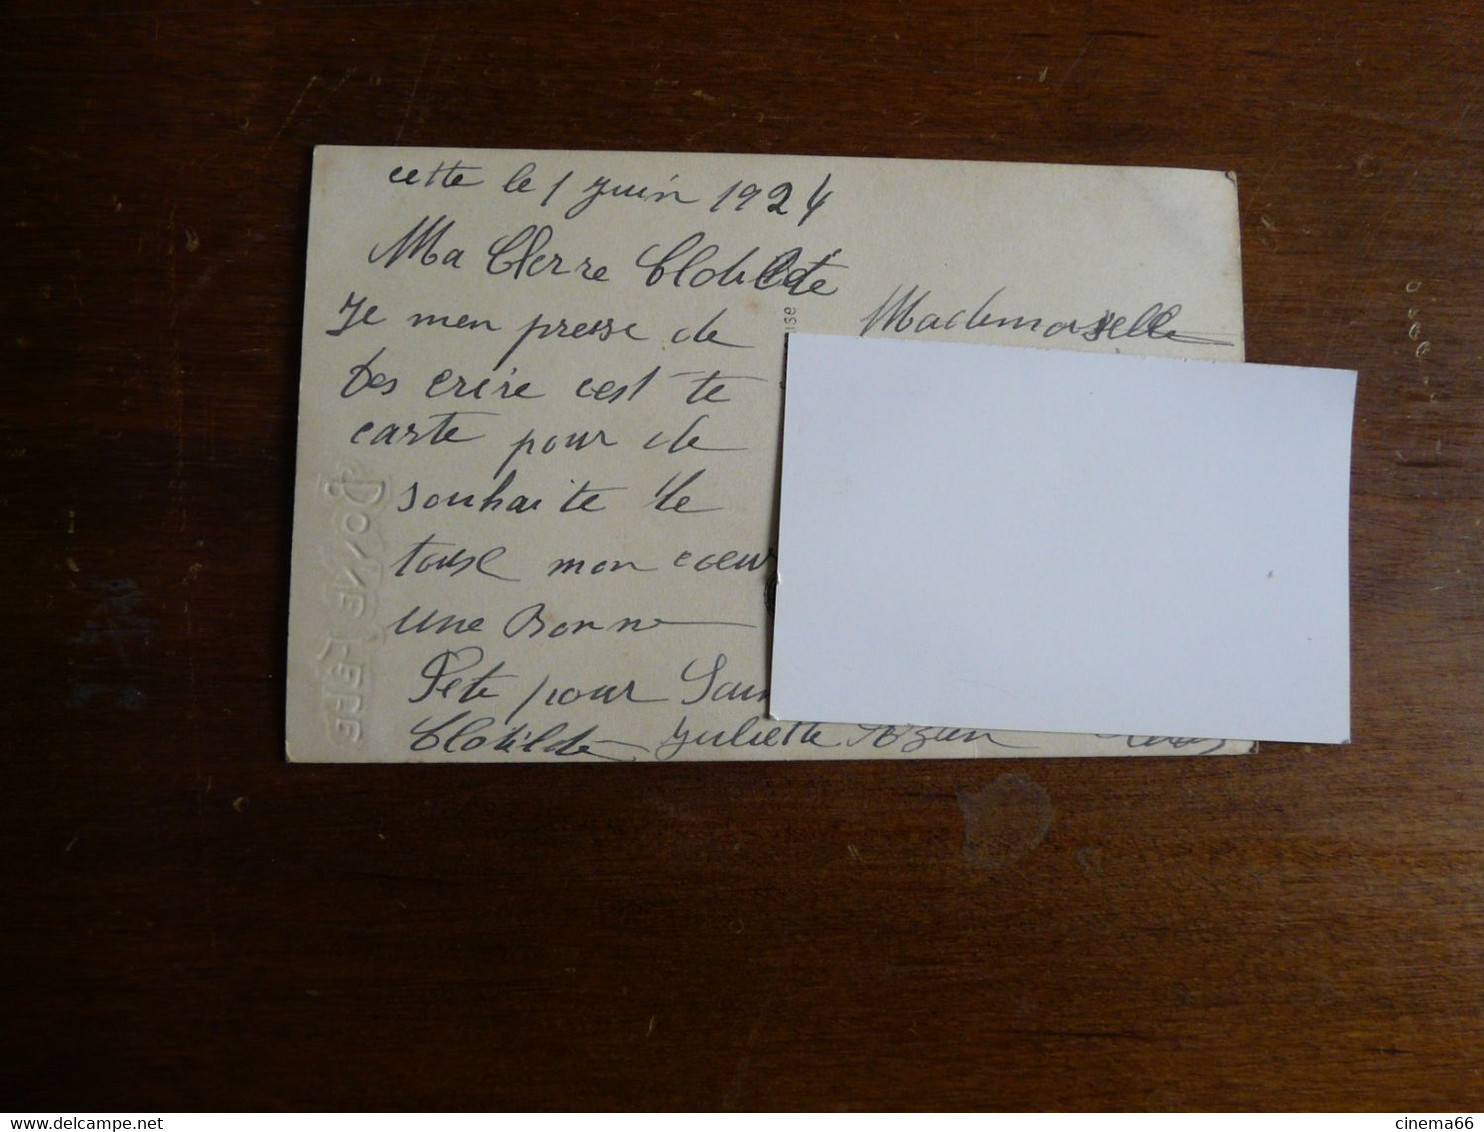 cette le 1 juin 1924
Ma Cherre Clotildte
Je men presse de
tes crire cest te
carte pour de
souhaite de
touse mon coeur
une Bonne
Fete pour Sain
Clotilde Juliette
Mademoiselle
BONNE FETE
cinema66